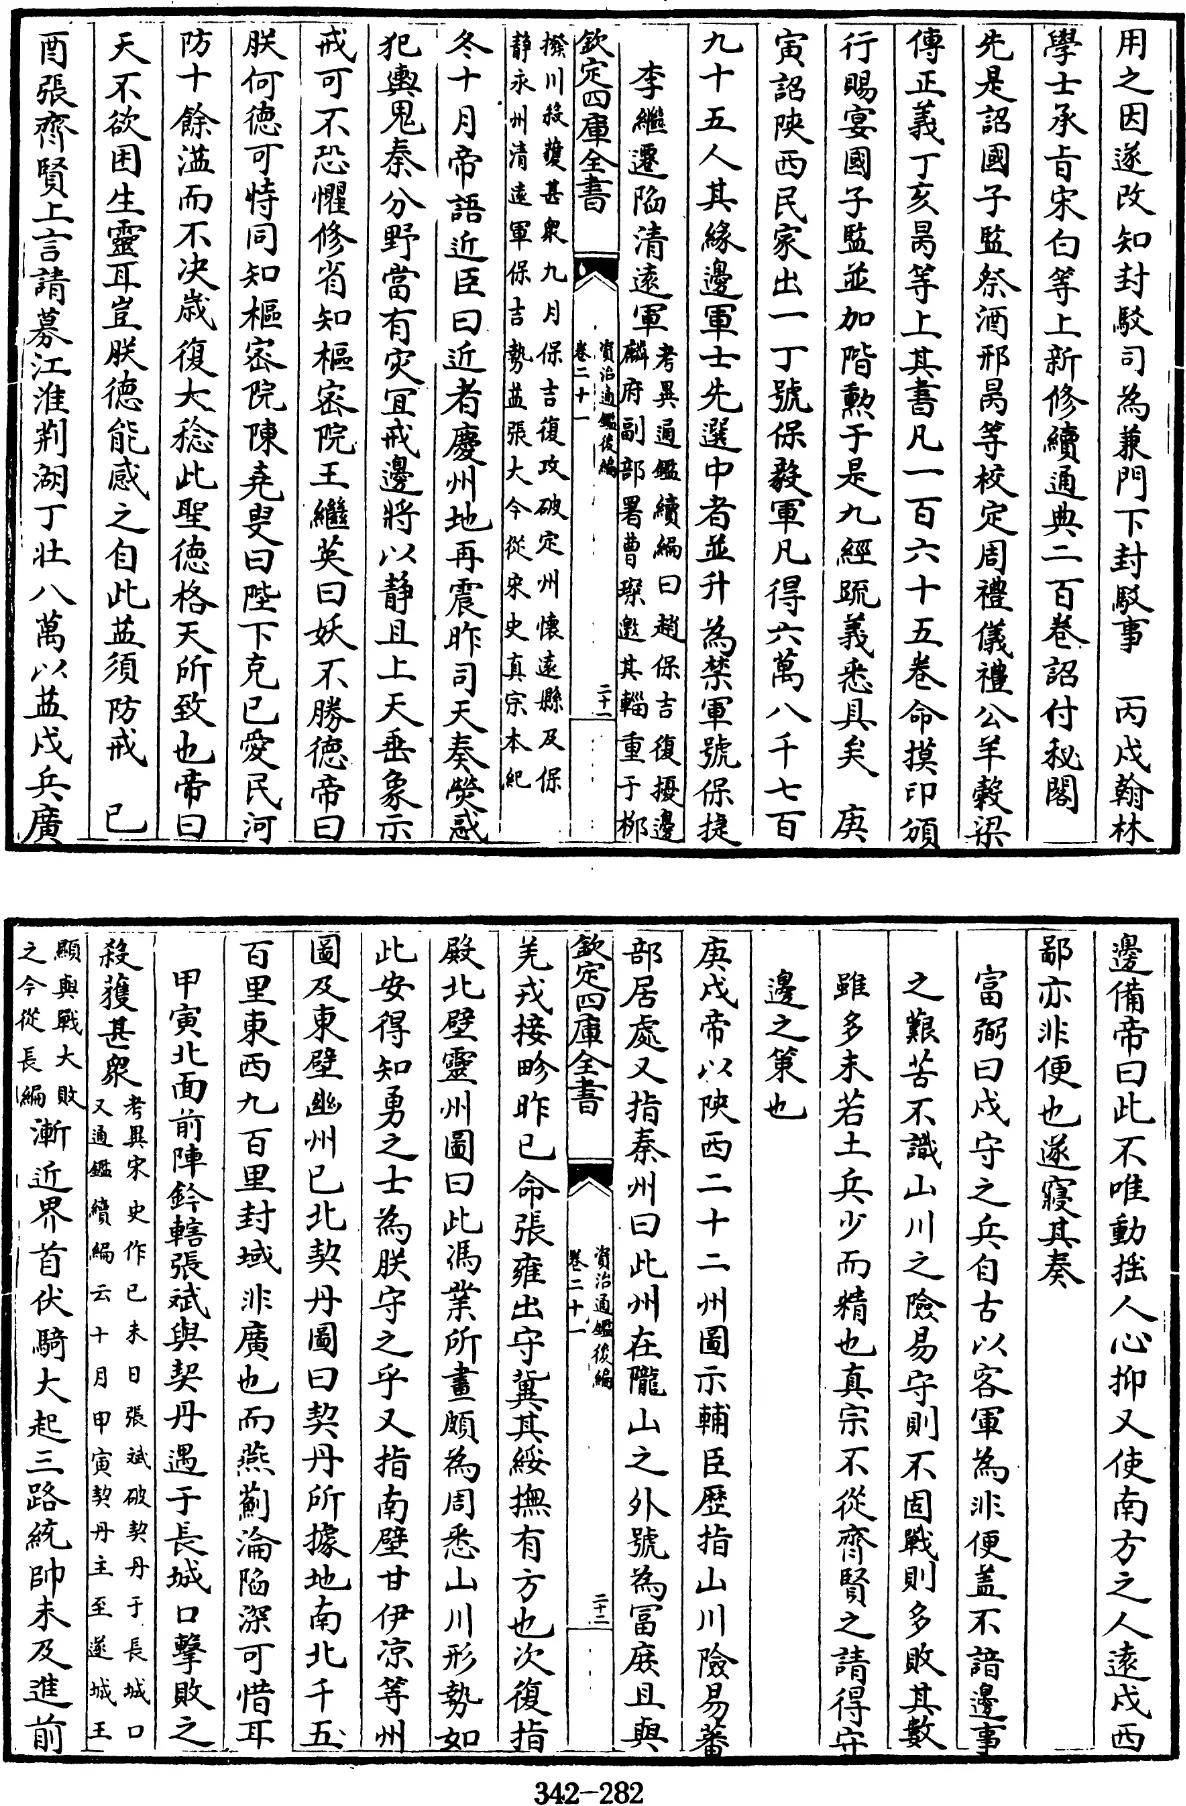 用之因遂改知封駁司為兼門下封駁事　丙戌翰林
學士承旨宋白等上新修續通典二百卷詔付秘閣
先是詔國子監祭酒邢昺等校定周禮儀禮公羊穀梁
傳正義丁亥昺等上其書凡一百六十五卷命摸印頒
行賜宴國子監並加階勲于是九經疏義悉具矣　庚
寅詔陜西民家出一丁號保毅軍凡得六萬八千七百
九十五人其緣邊軍士先選中者並升為禁軍號保捷
李繼遷陷清遠軍考異通鑑續編曰趙保吉復擾邊
麟府副部署曹璨邀其輜重于柳
欽定四庫全書
資治通鑑後編
卷二十一
二十一
撥川殺獲甚衆九月保吉復攻破定州懷遠縣及保
静永州清遠軍保吉勢益張大今從宋史真宗本紀
冬十月帝語近臣曰近者慶州地再震昨司天奏熒惑
犯輿鬼秦分野當有灾宜戒邊將以静且上天垂象示
戒可不恐懼修省知樞密院王繼英曰妖不勝德帝曰
朕何德可恃同知樞密院陳堯叟曰陛下克已愛民河
防十餘溢而不決歳復大稔此聖德格天所致也帝曰
天不欲困生靈耳豈朕德能感之自此益須防戒　已
酉張齊賢上言請募江淮荆湖丁壯八萬以益戍兵廣
邊備帝曰此不唯動揺人心抑又使南方之人遠戍西
鄙亦非便也遂寢其奏
富弼曰戍守之兵自古以客軍為非便蓋不諳邊事
之艱苦不識山川之險易守則不固戰則多敗其數
雖多未若土兵少而精也真宗不從齊賢之請得守
邊之策也
庚戍帝以陜西二十二州圖示輔臣歴指山川險易蕃
部居處又指秦州曰此州在隴山之外號為富庶且與
欽定四庫全書
資治通鑑後編
卷二十一
二十二
羌戎接畛昨已命張雍出守冀其綏撫有方也次復指
殿北壁靈州圖曰此馮業所畫頗為周悉山川形勢如
此安得知勇之士為朕守之乎又指南壁甘伊凉等州
圖及東壁幽州已北契丹圖曰契丹所據地南北千五
百里東西九百里封域非廣也而燕薊淪陷深可惜耳
甲寅北面前陣鈐轄張斌與契丹遇于長城口擊敗之
殺獲甚衆考異宋史作已未日張斌破契丹于長城口
又通鑑續編云十月甲寅契丹主至遂城王
顯與戰大敗
之今從長編漸近界首伏騎大起三路統帥未及進前
342-282